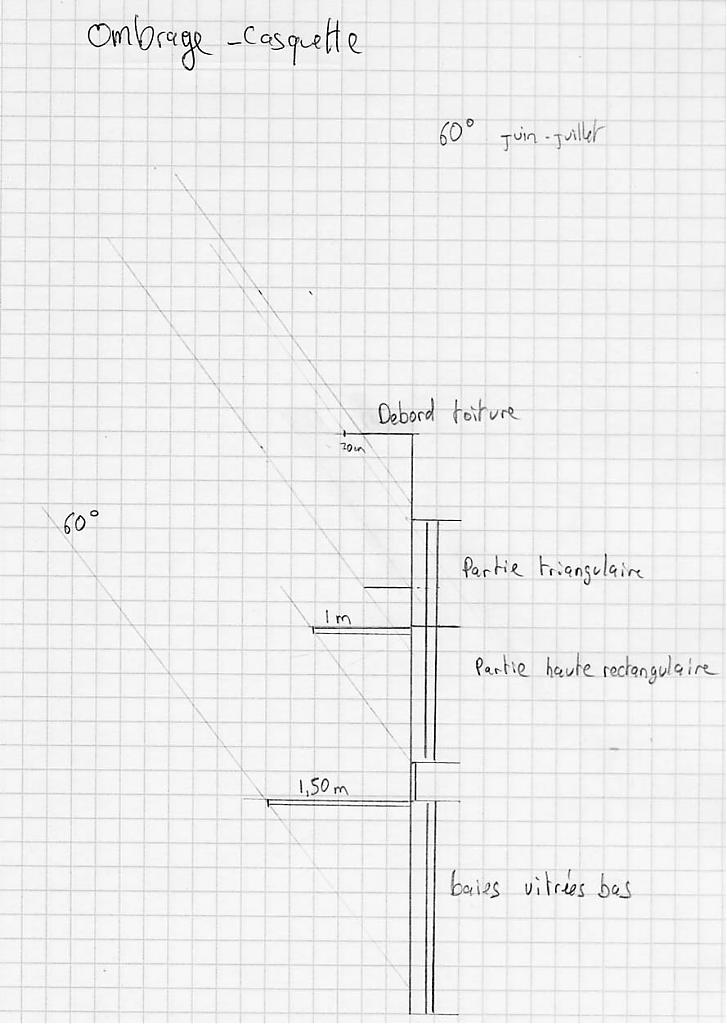 Ombrage - Casquette
60° juin - juillet
Debord toiture
70cm
60°
Partie triangulaire
1 m
Partie haute rectangulaire
1,50 m
baies vitrées bas